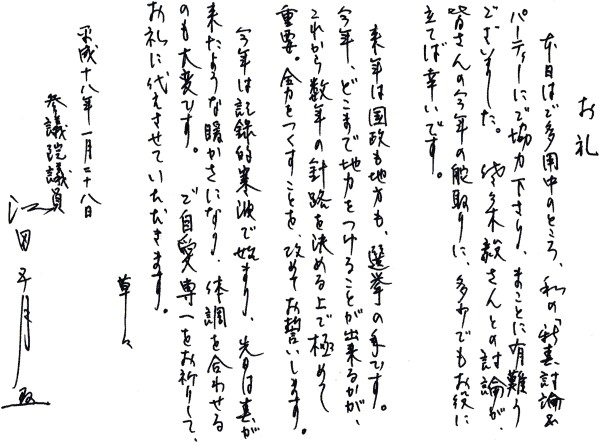 お礼
本日はご多用中のところ、私の「新春討論&
パーティー」にご協力下さり、まことに有難う
ございました。佐々木毅さんとの討論が、
皆さんの今年の舵取りに、多少でもお役に
立てば幸いです。
来年は国政も地方も、選挙の年です。
今年、どこまで地力をつけることが出来るかが、
これから数年の針路を決める上で極めて
重要。全力をつくすことを、改めてお誓いします。
今年は記録的寒波で始まり、先日は春が
来たような暖かさになり、体調を合わせる
のも大変です。ご自愛専一をお祈りして、
お礼に代えさせていただきます。
草々
平成十八年一月二十八日
参議院議員
江田五月